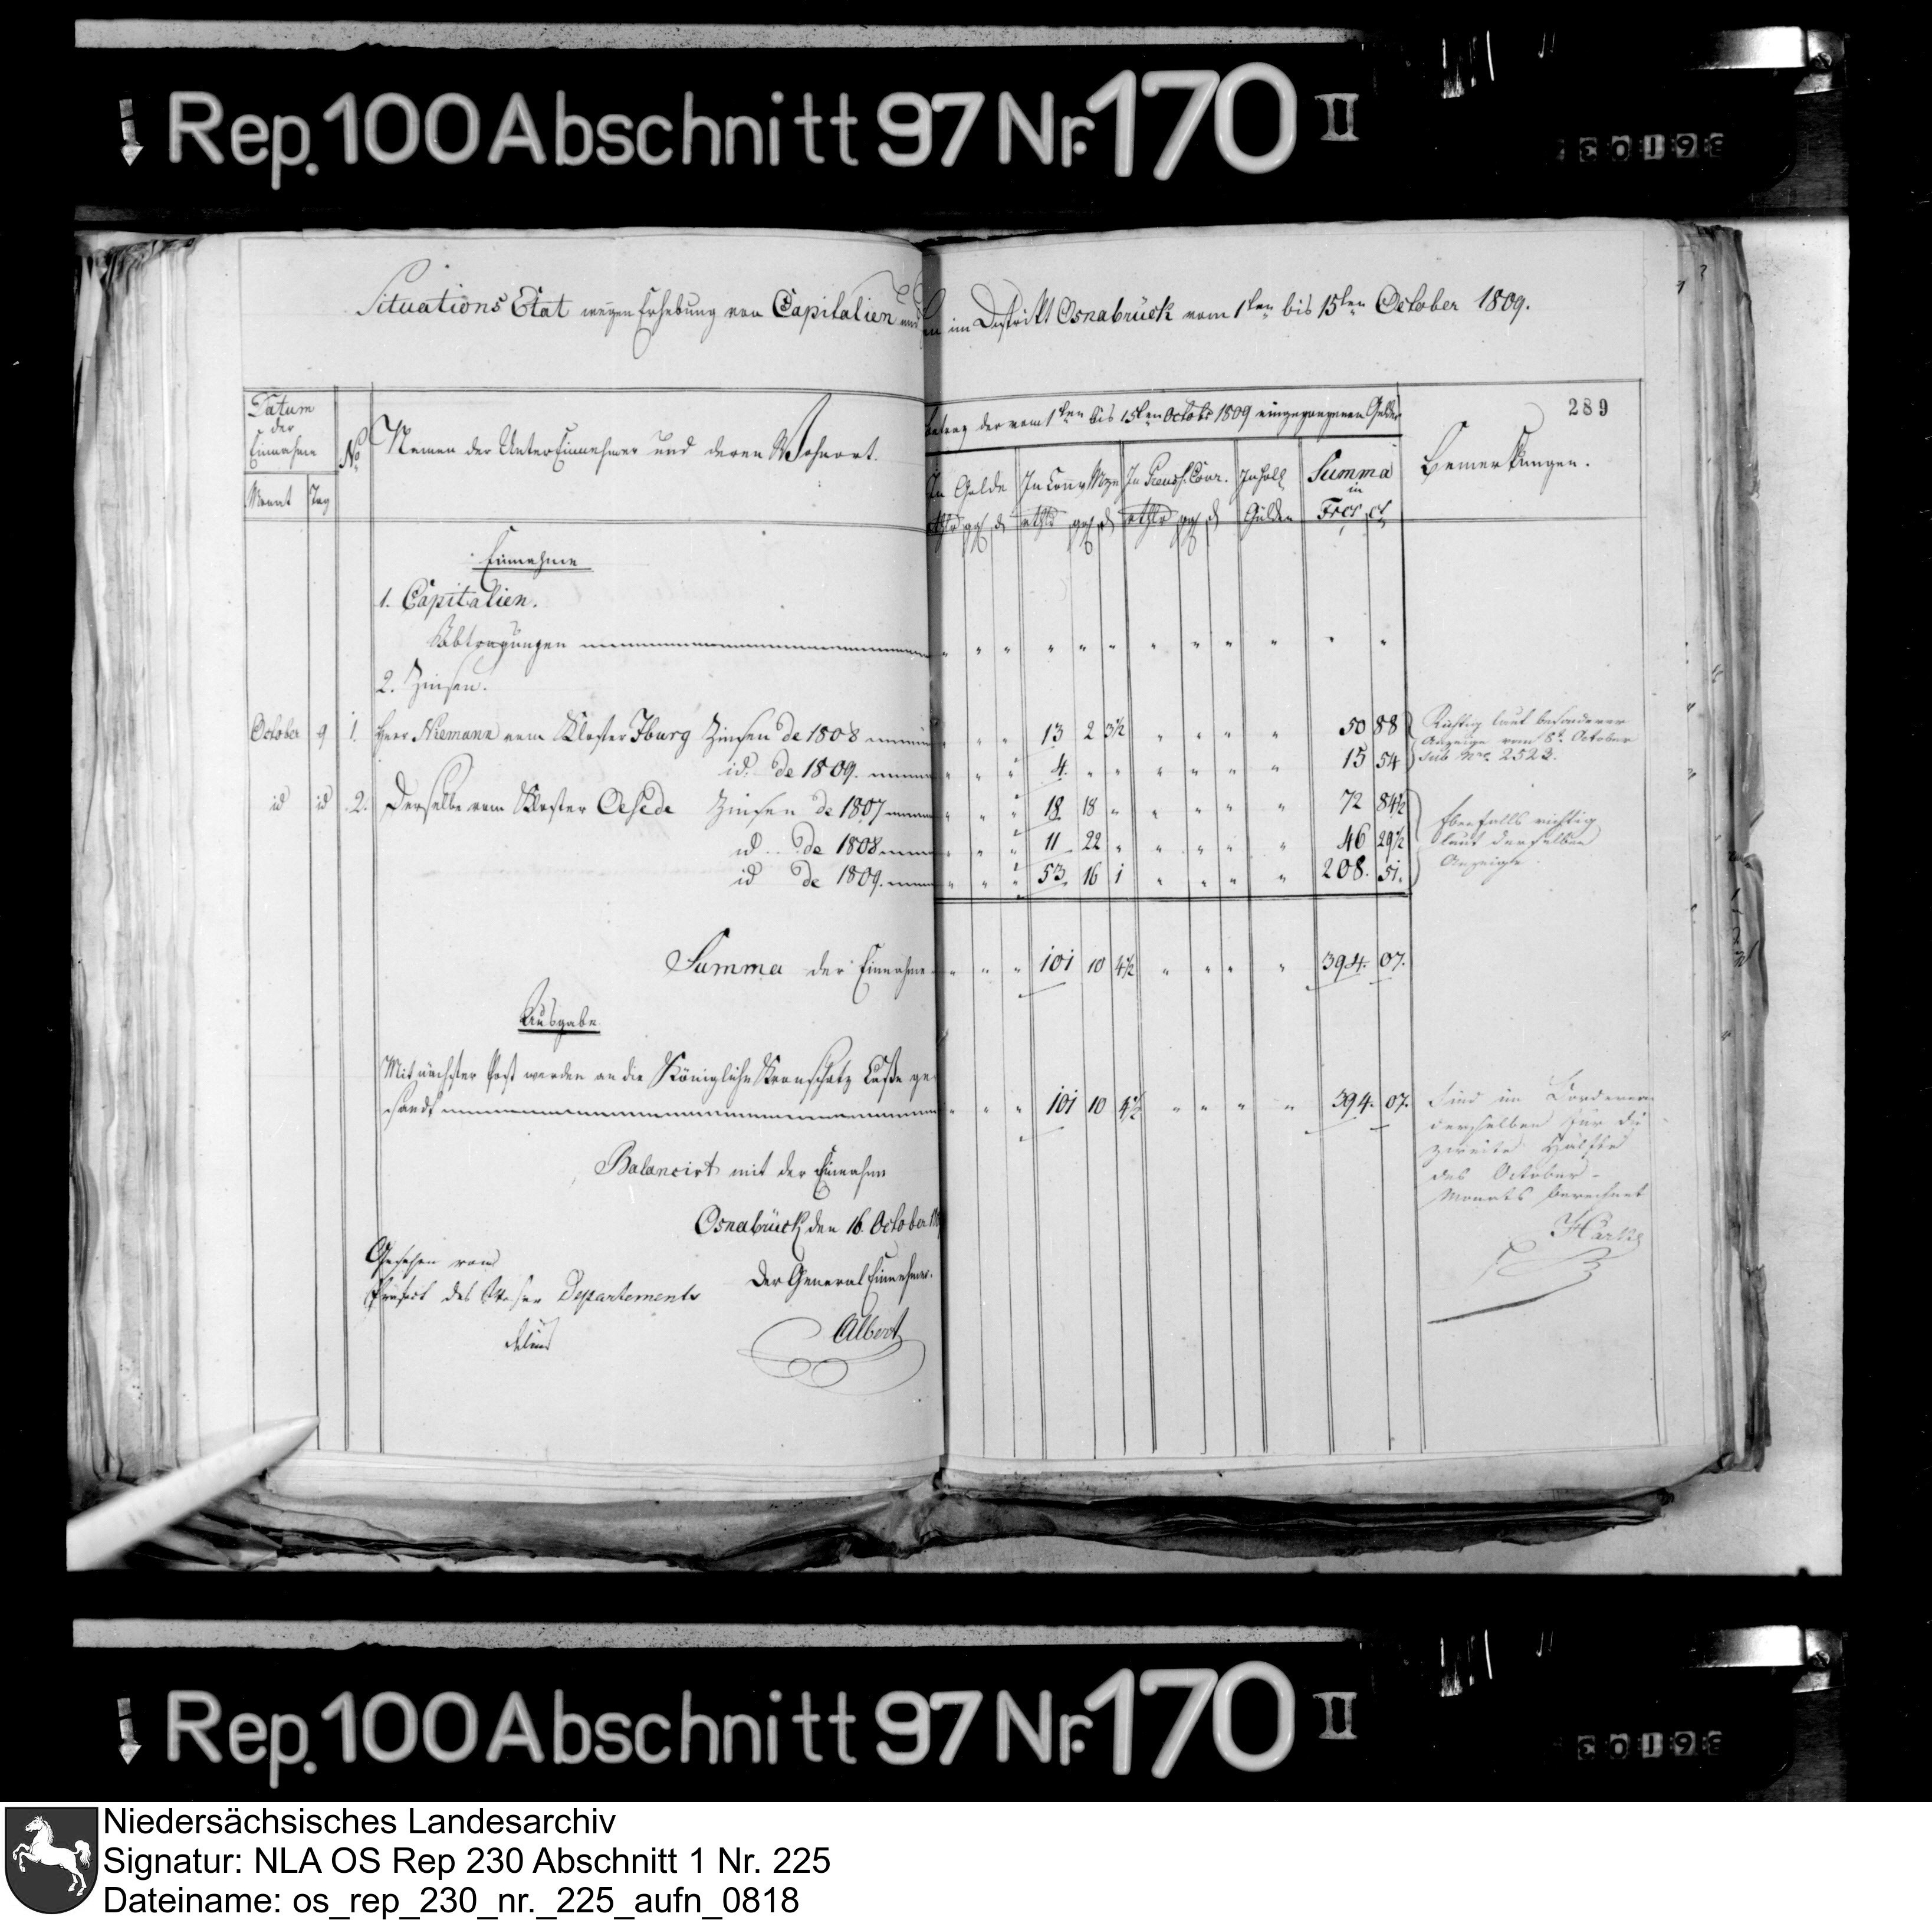 Rep. 100 Abschnitt 97 Nr. 170 II
Situations Etat wegen Erhebung von Capitalien und im Distrikt Osnabrück vom 1ten bis 15ten October 1809.
289
Datum der Einnahme
Monat Tag
No
Namen der Unter Einnehmer und deren Wohnort.
Betrag der vom 1ten bis 15ten Octobr 1809 eingegangenen Gelder
In Golde
In Conv. Mze
In Preuss. Cour.
In holl. Gulden
Summa in Frcs ct.
Bemerkungen.
Einnahme
1. Capitalien.
Abtragungen " " " " " " " " " " " "
2. Zinsen.
October 9 1. Herr Niemann vom Kloster Iburg Zinsen de 1808 " " " 13 2 3½ " " " " 50 88
id. de 1809. " " " 4. " " " " " " 15 54
Richtig laut besonderer
Anzeige vom 8t. October
sub Nro. 2523.
id id 2. Derselbe vom Kloster Oesede Zinsen de 1807 " " " 18 18 " " " " " 72 84½
id de 1808 " " " 11 22 " " " " " 46 29½
id de 1809. " " " 53 16 1 " " " " 208. 51.
Ebenfalls richtig
laut derselben
Anzeige
Summa der Einnahme " " " 101 10 4½ " " " " 394. 07.
Ausgabe
Mit nächster Post werden an die Königliche Kronschatz Casse ge-
sandt " " " 101 10 4½ " " " " 394. 07.
Sind im
derselben für die
zweite Hälfte
des October-
Monats berechnet
Balancirt mit der Einnahme
Osnabrück den 16. October 1809
Der General Einnehmer.
Albert
Gesehen vom
Präfect des Weser Departements
Rep. 100 Abschnitt 97 Nr. 170 II
Niedersächsisches Landesarchiv
Signatur: NLA OS Rep 230 Abschnitt 1 Nr. 225
Dateiname: os_rep_230_nr._225_aufn_0818